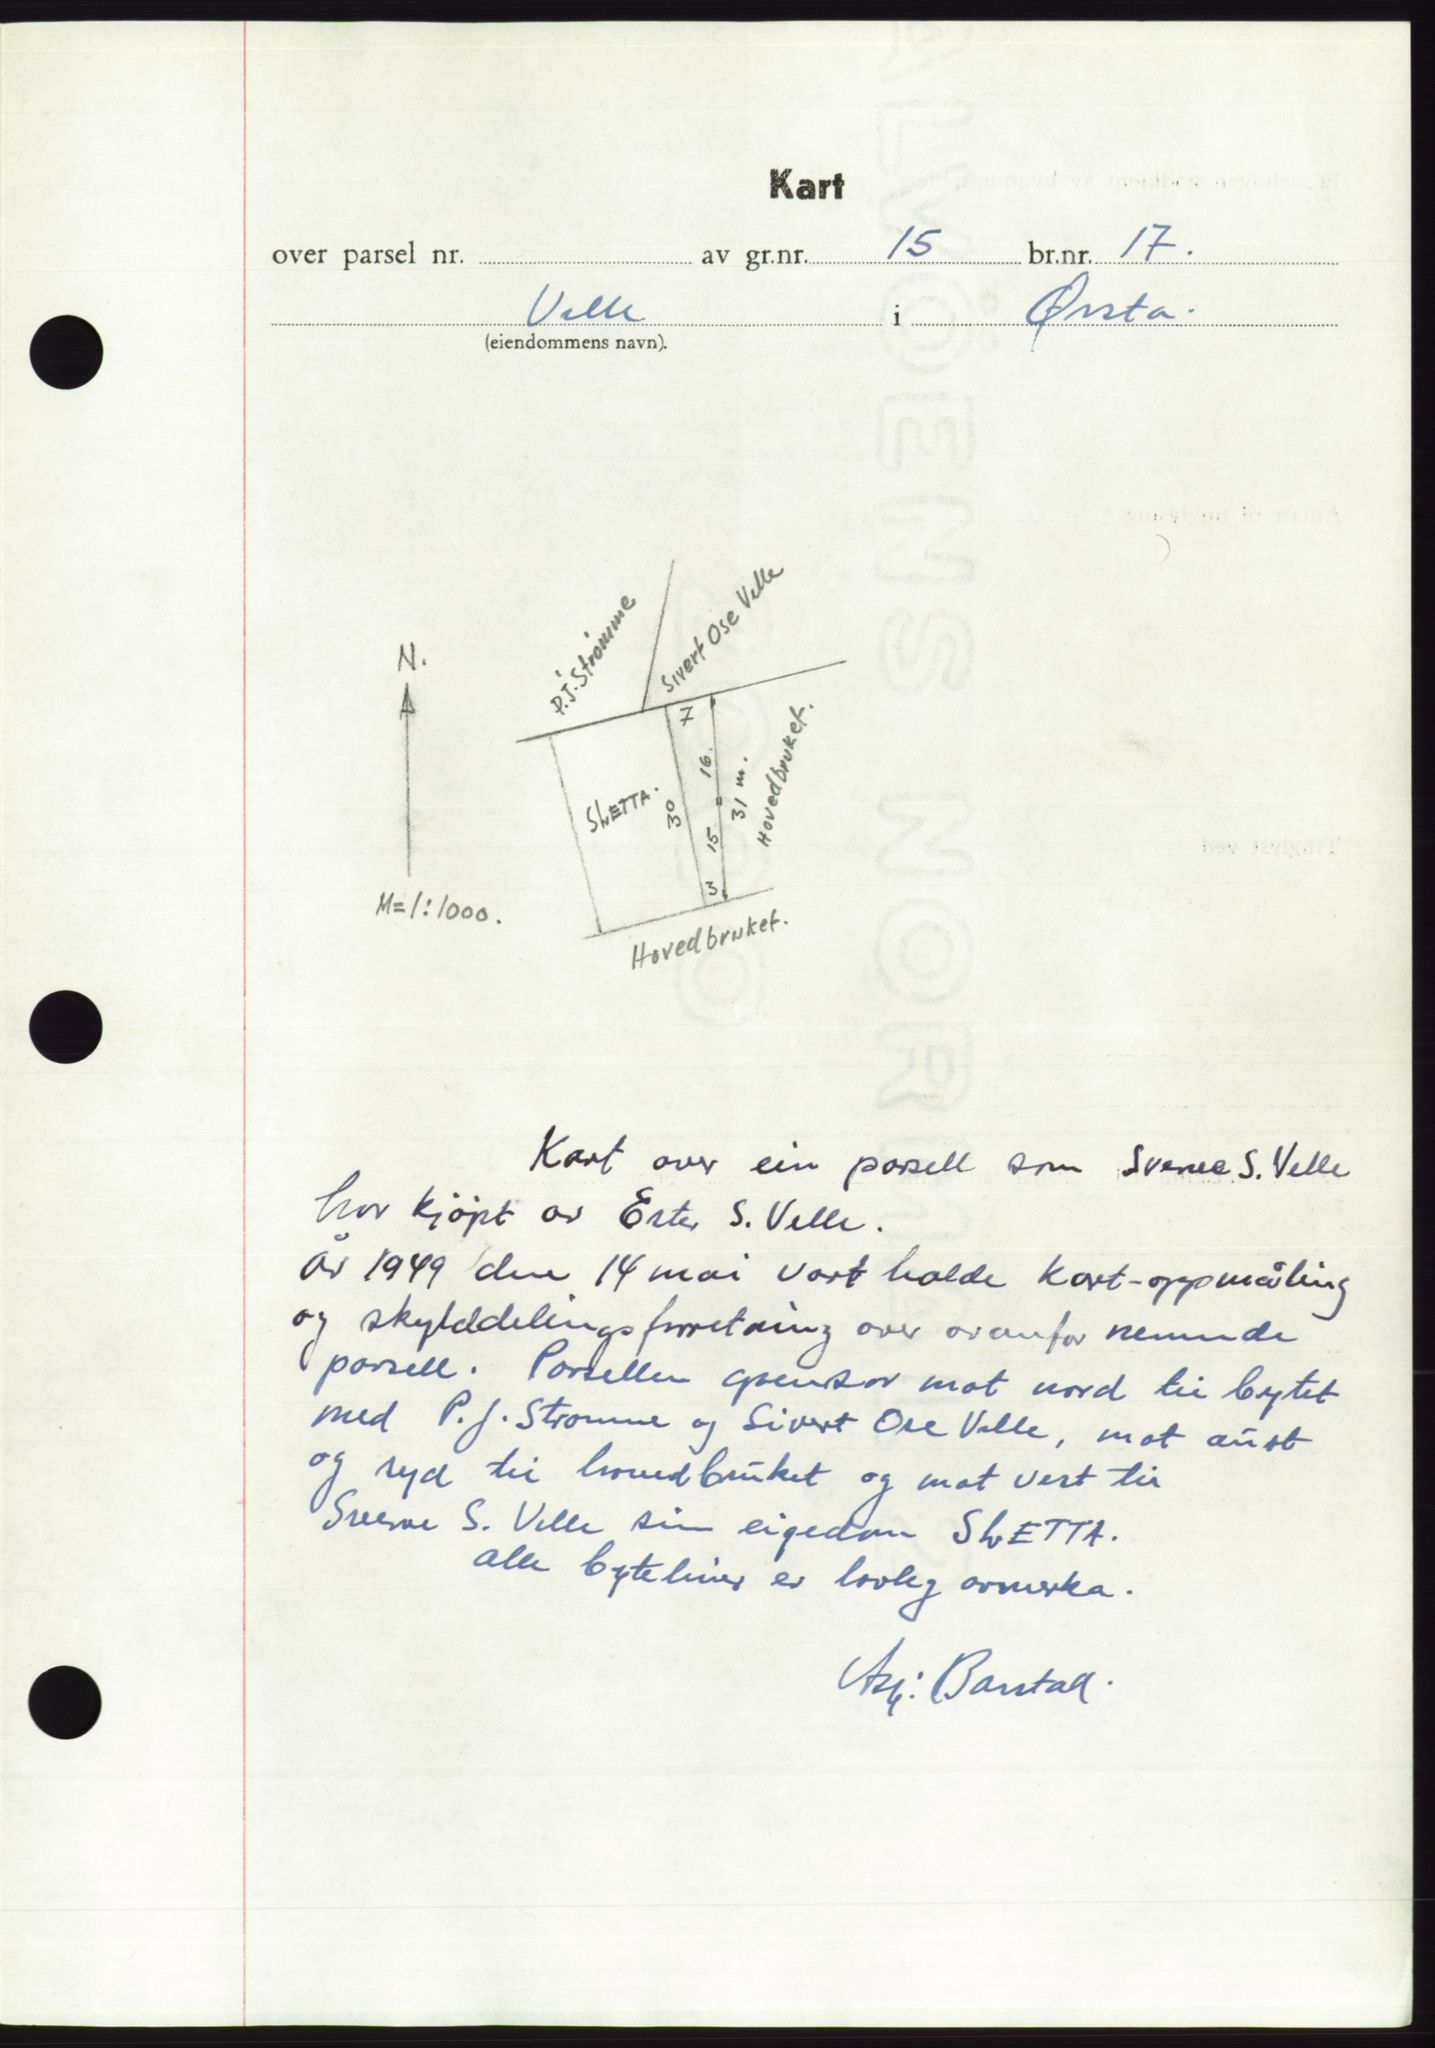 Kart
over parsel nr. av gr.nr. 15 br.nr. 17.
Velle i Ørsta.
(eiendommens navn).
P.J. Strømme
Sivert Ose Velle
N.
7
16.
31 m.
Hovedbruket.
SLETTA.
30
15
3
M=1:1000.
Hovedbruket.
Kart over ein parsell som Sverre S. Velle
har kjøpt av Ester S. Velle.
År 1949 den 14 mai vart halde kart-oppmåling
og skylddelingsforretning over ovanfor nemnde
parsell. Parsellen grensar mot nord til bytet
med P.J. Strømme og Sivert Ose Velle, mot aust
og syd til hovedbruket og mot vest til
Sverre S. Velle sin eigedom SLETTA.
Alle byteliner er lovleg avmerka.
Barstad.